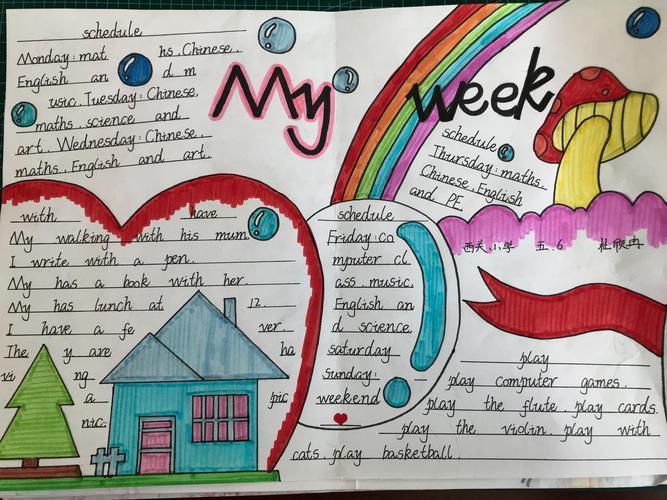 My week
schedule
Monday: mat hs. Chinese.
English an d m
usic. Tuesday: Chinese.
maths. science and
art. Wednesday: Chinese.
maths. English and art.
schedule
Thursday: maths.
Chinese. English
and PE
西关小学 五.6 杜欣冉
with have
My walking with his mum
I write with a pen.
My has a book with her.
My has lunch at 12.
I have a fe ver.
The y are ha
vi ng
a pic
nic.
schedule
Friday: co
mputer cl
ass. music.
English an
d science.
saturday
Sunday:
weekend
play
play computer games.
play the flute. play cards.
play the violin. play with
cats. play basketball.